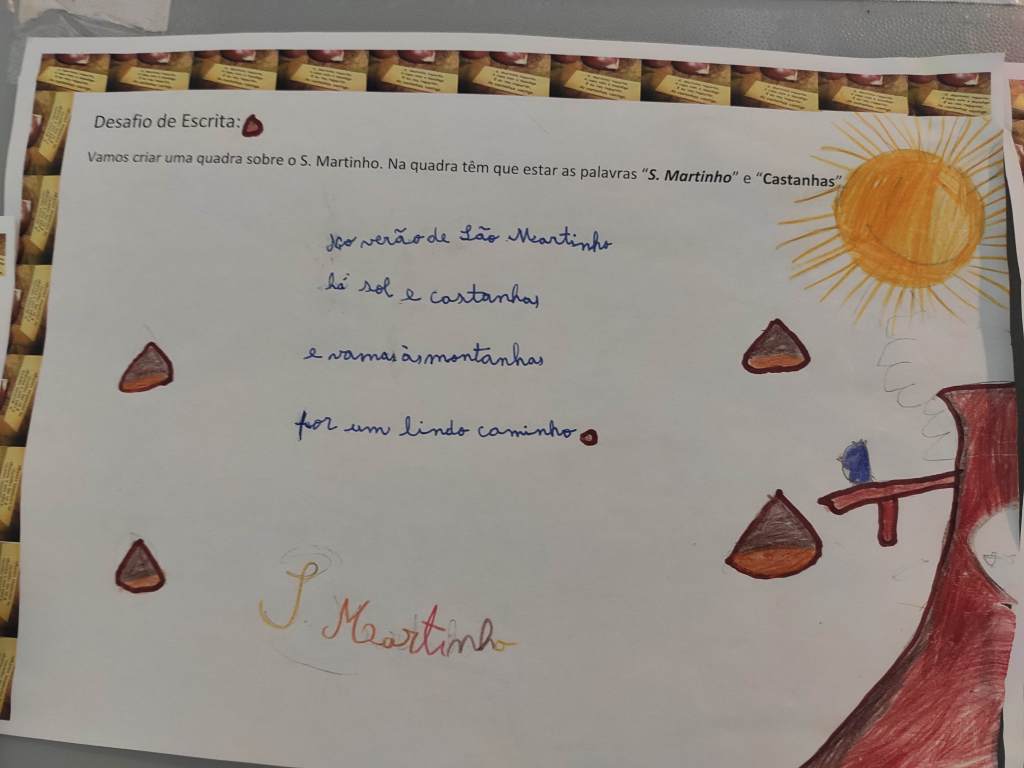 Desafio de Escrita:
Vamos criar uma quadra sobre o S. Martinho. Na quadra têm que estar as palavras “S. Martinho” e “Castanhas”
No verão de São Martinho
há sol e castanhas
e vamos às montanhas
por um lindo caminho
S. Martinho